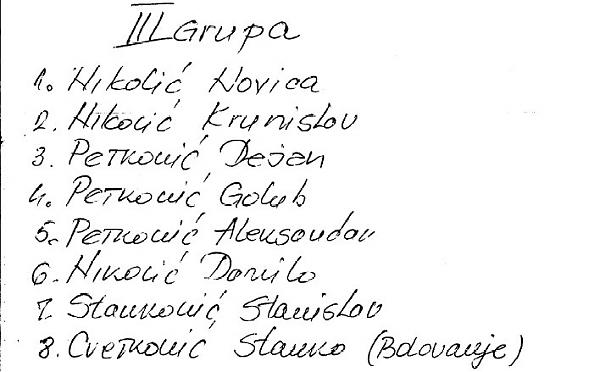 III Grupa
1. Nikolić Novica
2. Nikolić Krunislav
3. Petković Dejan
4. Petković Golub
5. Petković Aleksandar
6. Nikolić Danilo
7. Stanković Stanislav
8. Cvetković Stanko (Bdovanje)